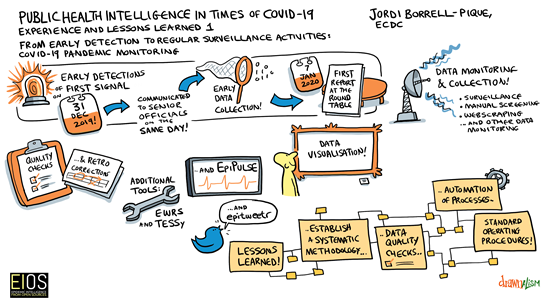 PUBLIC HEALTH INTELLIGENCE IN TIMES OF COVID-19
EXPERIENCE AND LESSONS LEARNED 1
FROM EARLY DETECTION TO REGULAR SURVEILLANCE ACTIVITIES:
COVID-19 PANDEMIC MONITORING
JORDI BORRELL-PIQUE,
ECDC
EARLY DETECTIONS
OF FIRST SIGNAL
ON
31
DEC
2019!
COMMUNICATED
TO SENIOR
OFFICIALS
ON THE
SAME DAY!
EARLY
DATA
COLLECTION!
JAN
2020
FIRST
REPORT
AT THE
ROUND
TABLE
DATA MONITORING
& COLLECTION!
• SURVEILLANCE
• MANUAL SCREENING
• WEBSCRAPING
...AND OTHER DATA
MONITORING
QUALITY
CHECKS
...& RETRO
CORRECTION
ADDITIONAL
TOOLS:
EWRS
AND TESSy
...AND EPIPULSE
...AND
epitweetr
DATA
VISUALISATION!
LESSONS
LEARNED!
..ESTABLISH
A SYSTEMATIC
METHODOLOGY...
..DATA
QUALITY
CHECKS..
..AUTOMATION
OF PROCESSES..
STANDARD
OPERATING
PROCEDURES!
EIOS
drawnalism